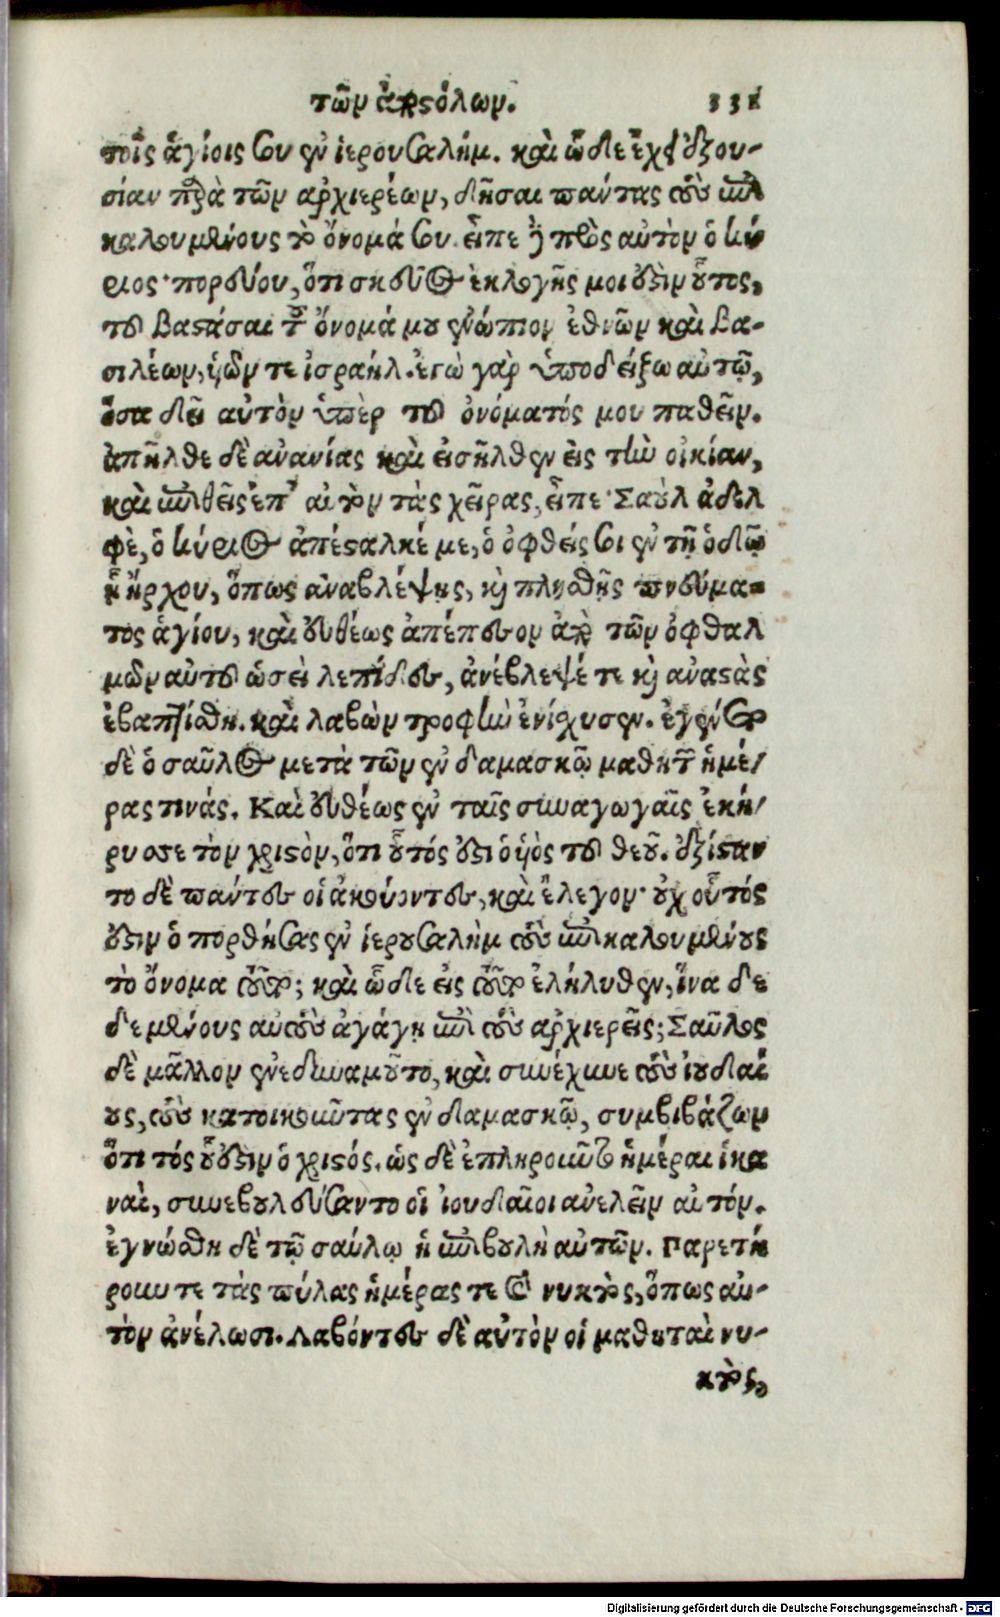 τῶν ἀποστόλων. 331
τοῖς ἁγίοις σου ἐν ἱερουσαλήμ. καὶ ὧδε ἔχει ἐξου-
σίαν παρὰ τῶν ἀρχιερέων, δῆσαι πάντας τοὺς ἐπι
καλουμένους τὸ ὄνομά σου. εἶπε δὲ πρὸς αὐτὸν ὁ κύ
ριος· πορεύου, ὅτι σκεῦος ἐκλογῆς μοι ἐστιν οὗτος,
τοῦ βαστάσαι τὸ ὄνομά μου ἐνώπιον ἐθνῶν καὶ βα-
σιλέων, ὑιῶν τε ἰσραήλ. ἐγὼ γὰρ ὑποδείξω αὐτῷ,
ὅσα δεῖ αὐτὸν ὑπὲρ τοῦ ὀνόματός μου παθεῖν.
ἀπῆλθε δὲ ἀνανίας καὶ εἰσῆλθεν εἰς τὴν οἰκίαν,
καὶ ἐπιθεῖς ἐπ' αὐτὸν τὰς χεῖρας, εἶπε· Σαοὺλ ἀδελ
φὲ, ὁ κύριος ἀπέσταλκέ με, ὁ ὀφθείς σοι ἐν τῇ ὁδῷ
ᾗ ἤρχου, ὅπως ἀναβλέψῃς, καὶ πλησθῇς πνεύμα-
τος ἁγίου, καὶ εὐθέως ἀπέπεσον ἀπὸ τῶν ὀφθαλ
μῶν αὐτοῦ ὡσεὶ λεπίδες, ἀνέβλεψέ τε καὶ ἀναστὰς
ἐβαπτίσθη. καὶ λαβὼν τροφὴν ἐνίσχυσεν. ἐγένετο
δὲ ὁ σαῦλος μετὰ τῶν ἐν δαμασκῷ μαθητῶν ἡμέ-
ρας τινάς. Καὶ εὐθέως ἐν ταῖς συναγωγαῖς ἐκή-
ρυσσε τὸν χριστὸν, ὅτι οὗτός ἐστι ὁ ὑιὸς τοῦ θεοῦ. ἐξίσταν
το δὲ πάντες οἱ ἀκούοντες, καὶ ἔλεγον· οὐχ οὗτός
ἐστιν ὁ πορθήσας ἐν ἱερουσαλὴμ τοὺς ἐπικαλουμένους
τὸ ὄνομα τοῦτο; καὶ ὧδε εἰς τοῦτο ἐλήλυθεν, ἵνα δε
δεμένους αὐτοὺς ἀγάγῃ ἐπὶ τοὺς ἀρχιερεῖς; Σαῦλος
δὲ μᾶλλον ἐνεδυναμοῦτο, καὶ συνέχυνε τοὺς ἰουδαί
ους, τοὺς κατοικοῦντας ἐν δαμασκῷ, συμβιβάζων
ὅτι οὗτός ἐστιν ὁ χριστός. ὡς δὲ ἐπληροῦντο ἡμέραι ἱκα
ναὶ, συνεβουλεύσαντο οἱ ἰουδαῖοι ἀνελεῖν αὐτόν.
ἐγνώσθη δὲ τῷ σαύλῳ ἡ ἐπιβουλὴ αὐτῶν. Παρετή
ρουν τε τὰς πύλας ἡμέρας τε καὶ νυκτὸς, ὅπως αὐ-
τὸν ἀνέλωσι. Λαβόντες δὲ αὐτὸν οἱ μαθηταὶ νυ-
κτὸς,